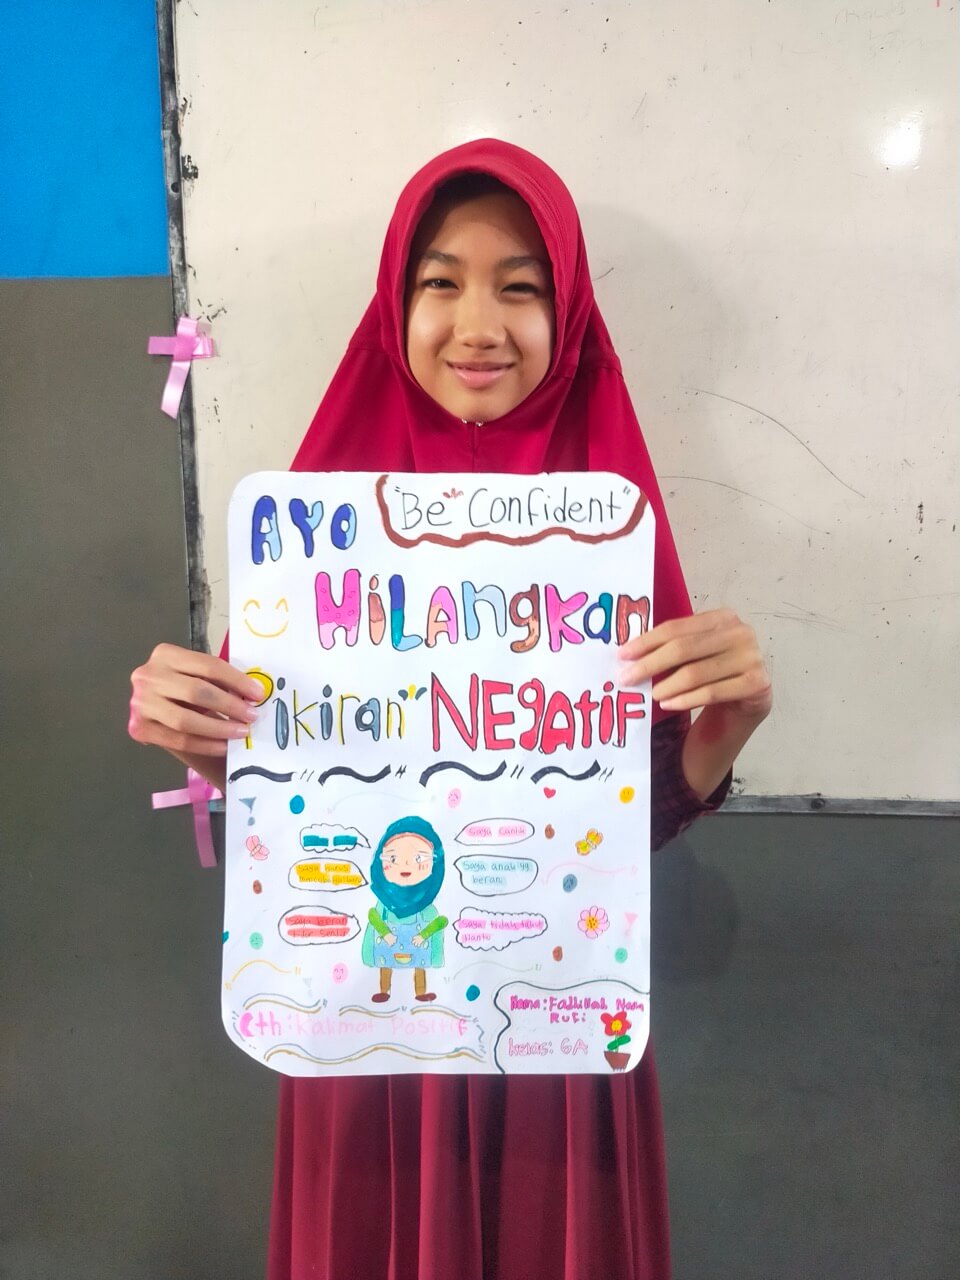 AYO
"Be Confident"
HiLAngKan
Pikiran NEgAtiF
Saya Cantik
Saya harus
Saya anak yg
berani
Saya berani
Saya tidak takut
Cth: Kalimat Positif
Nama: Fadhillah Nana
Ruti
kelas: 6A